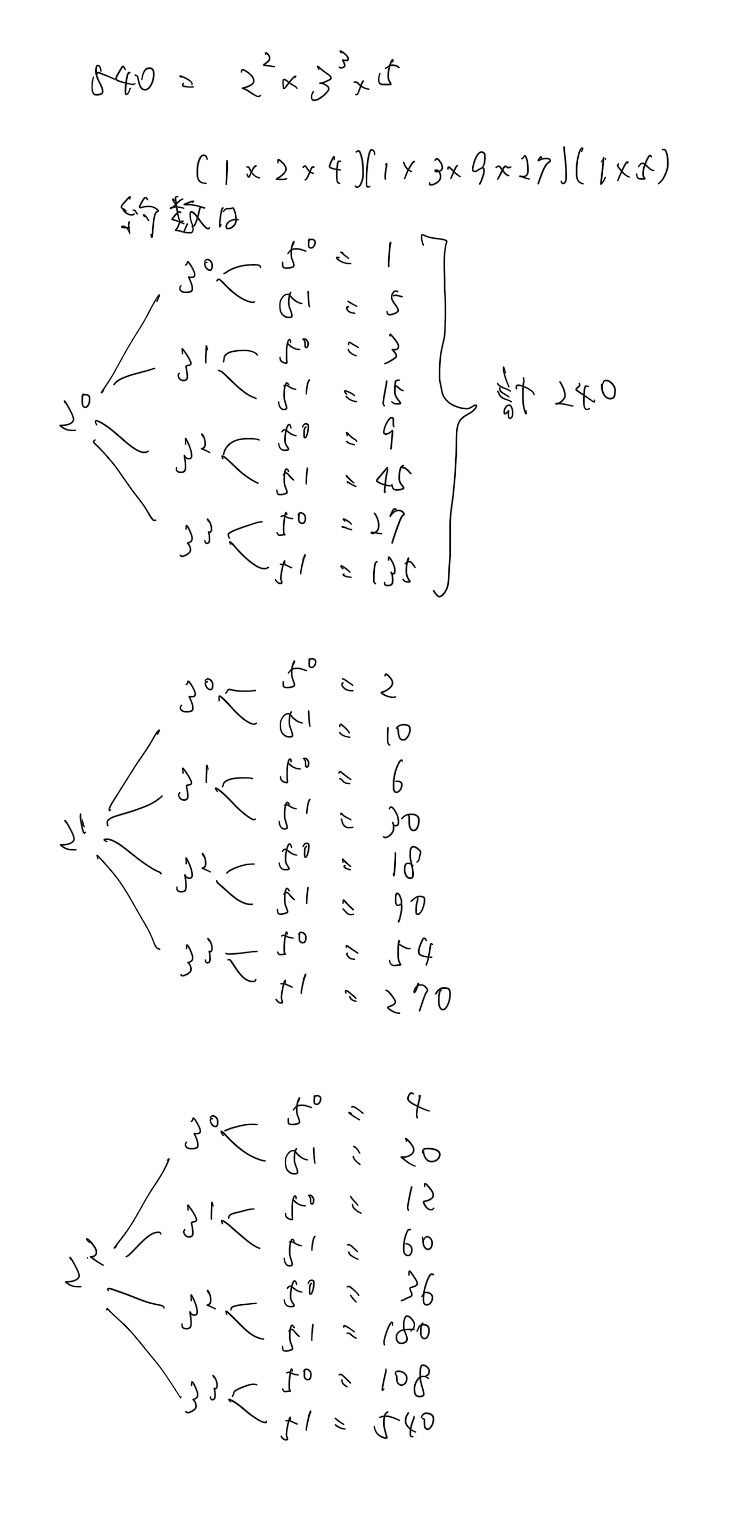 540 = 2² × 3³ × 5
(1 × 2 × 4)(1 × 3 × 9 × 27)(1 × 5)
約数は
2⁰
3⁰ 5⁰ = 1
5¹ = 5
3¹ 5⁰ = 3
5¹ = 15
3² 5⁰ = 9
5¹ = 45
3³ 5⁰ = 27
5¹ = 135
計 240
2¹
3⁰ 5⁰ = 2
5¹ = 10
3¹ 5⁰ = 6
5¹ = 30
3² 5⁰ = 18
5¹ = 90
3³ 5⁰ = 54
5¹ = 270
2²
3⁰ 5⁰ = 4
5¹ = 20
3¹ 5⁰ = 12
5¹ = 60
3² 5⁰ = 36
5¹ = 180
3³ 5⁰ = 108
5¹ = 540